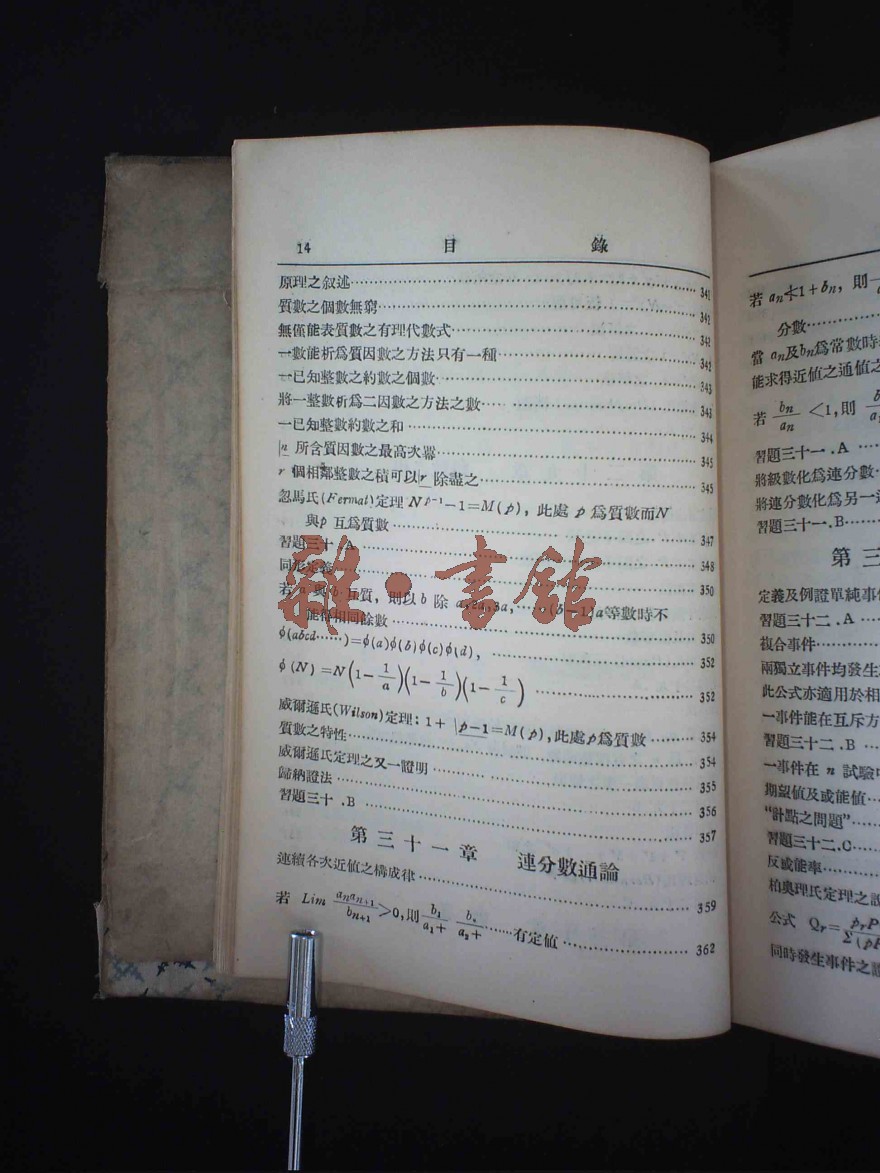 14 目 錄
原理之叙述 341
質數之個數無窮 341
無僅能表質數之有理代數式 341
一數能析爲質因數之方法只有一種 342
一已知整數之約數之個數 343
將一整數析爲二因數之方法之數 343
一已知整數約數之和 344
|n 所含質因數之最高次冪 345
r 個相鄰整數之積可以|r 除盡之 345
忽馬氏(Fermat)定理 N^{p-1}-1=M(p), 此處 p 爲質數而N
與p 互爲質數 347
習題三十 .A 348
同形定義 350
若 a 與 b 互質, 則以 b 除 a, 2a, 3a, ……(b-1)a等數時不
能得相同餘數 350
φ(abcd……)=φ(a)φ(b)φ(c)φ(d), 352
φ(N)=N(1-1/a)(1-1/b)(1-1/c) 352
威爾遜氏(Wilson)定理: 1+|p-1=M(p), 此處p爲質數 354
質數之特性 354
威爾遜氏定理之又一證明 355
歸納證法 356
習題三十 .B 357
第三十一章 連分數通論
連續各次近值之構成律 359
若 Lim a_n a_{n+1}/b_{n+1}>0, 則 b_1/a_1+ b_2/a_2+ ……有定值 362
雜·書館
若 a_n≮1+b_n, 則
分數
當 a_n及b_n爲常數時
能求得近值之通值之
若 b_n/a_n <1, 則
習題三十一 .A
將級數化爲連分數
將連分數化爲另一
習題三十一.B
第三
定義及例證單純事
習題三十二 .A
複合事件
兩獨立事件均發生
此公式亦適用於相
一事件能在互斥方
習題三十二 .B
一事件在 n 試驗
期望值及或能值
“計點之問題”
習題三十二.C
反或能率
柏奧理氏定理之
公式 Q_r=
同時發生事件之